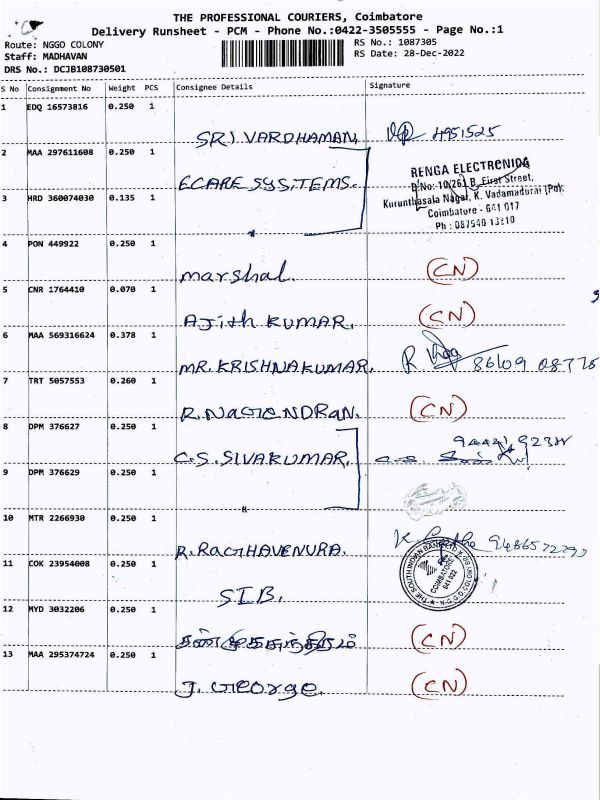 THE PROFESSIONAL COURIERS, Coimbatore
Delivery Runsheet - PCM - Phone No.:0422-3505555 - Page No.:1
Route: NGGO COLONY
RS No.: 1087305
Staff: MADHAVAN
RS Date: 28-Dec-2022
DRS No.: DCJB108730501
S No Consignment No Weight PCS Consignee Details Signature
1 EDQ 16573816 0.250 1
SRI VARDHAMAN 4951525
2 MAA 297611608 0.250 1
ECARE SYSTEMS.
RENGA ELECTRONICS
D.No: 10/261 B, First Street,
Kurunthasala Nagar, K. Vadamadurai (Po),
Coimbatore - 641 017
Ph : 087540 13210
3 HRD 360074030 0.135 1
"
4 PON 449922 0.250 1
marshal. (CN)
5 CNR 1764410 0.070 1
AJith KUMAR. (CN)
6 MAA 569316624 0.378 1
MR. KRISHNAKUMAR.
7 TRT 5057553 0.260 1
R. NAGENDRAN. (CN)
8 DPM 376627 0.250 1
C.S. SIVAKUMAR.
9 DPM 376629 0.250 1
"
10 MTR 2266930 0.250 1
R. RAGHAVENURA.
11 COK 23954008 0.250 1
S.I.B.
THE SOUTH INDIAN BANK LTD
COIMBATORE
641 022
12 MYD 3032206 0.250 1
(CN)
13 MAA 295374724 0.250 1
J. George. (CN)